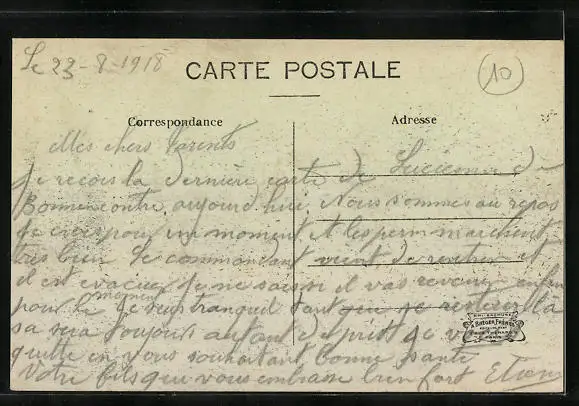 Le 23-8-1918
CARTE POSTALE
10
Correspondance
Adresse
Mes chers Parents
Je recois la dernière carte de Lucienne de
Bonnencontre aujourd'hui. Nous sommes au repos
je crois pour un moment. Et les perm marchent
très bien le commandant vient de rentrer et
il est evacué Je ne sais s'il vas revenir enfin
pour le moment Je suis tranquil tant que je resterai là
sa sera toujours autant de pris Je vous
quitte en vous souhaitant bonne sante
Votre fils qui vous embrasse bien fort Etienne
PARIS